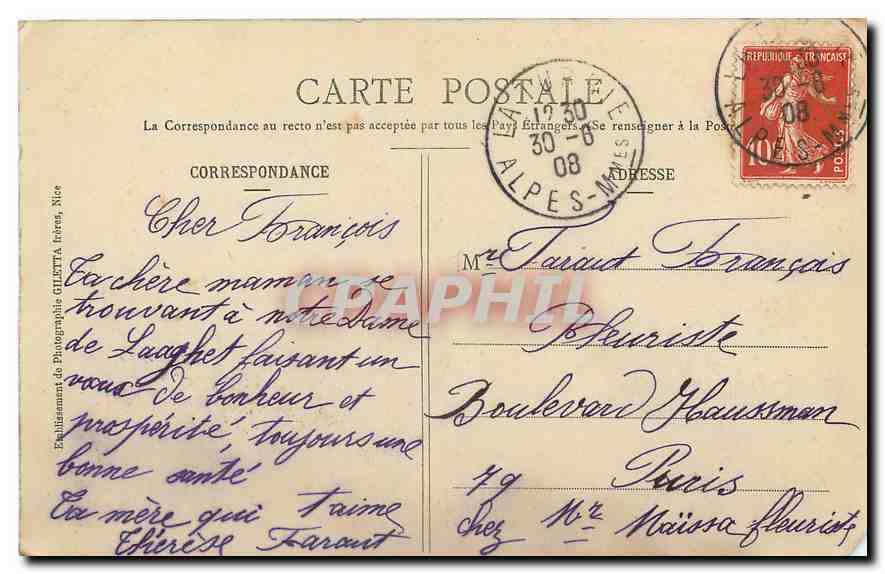 CARTE POSTALE
La Correspondance au recto n'est pas acceptée par tous les Pays Étrangers. (Se renseigner à la Pos
CORRESPONDANCE
Cher François
Ta chère maman se
trouvant à notre Dame
de Laaghet faisant un
voeux de bonheur et
prospérité, toujours une
bonne santé
Ta mère qui t'aime
Thérèse Faraut
Etablissement de Photographie GILETTA frères, Nice
ADRESSE
Mr Faraut François
Fleuriste
Boulevard Haussman
79 Paris
chez Mr Maïssa fleuriste
LA TURBIE
12 30
30 - 6
08
ALPES-MMES
REPUBLIQUE FRANÇAISE
10
POSTES
30 - 6
08
ALPES-MMES
CPAPHIL